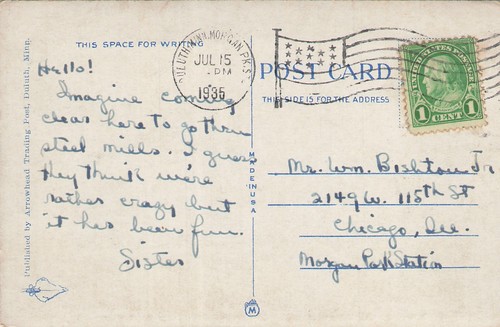 THIS SPACE FOR WRITING
DULUTH, MINN. MORGAN PK. S
JUL 15
PM
1935
UNITED STATES POSTAGE
1 1
CENT
POST CARD
THIS SIDE IS FOR THE ADDRESS
Hello!
Imagine coming
clear here to go thru
steel mills. I guess
they think we're
rather crazy but
it has been fun.
Sister
Published by Arrowhead Trading Post, Duluth, Minn.
MADE IN USA
Mr. Wm. Bishton Jr
2149 W. 115th St
Chicago, Ill.
Morgan Park Station
M